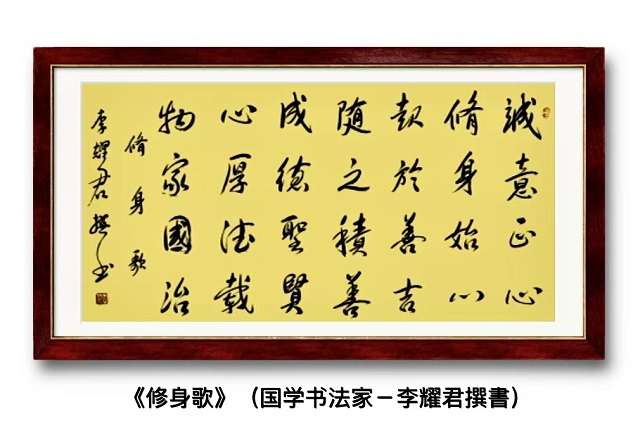 誠意正心
脩身始心
起於善吉
隨之積善
成德聖賢
心厚德載
物家國治
脩身歌
李耀君撰書
《修身歌》（国学书法家－李耀君撰書）